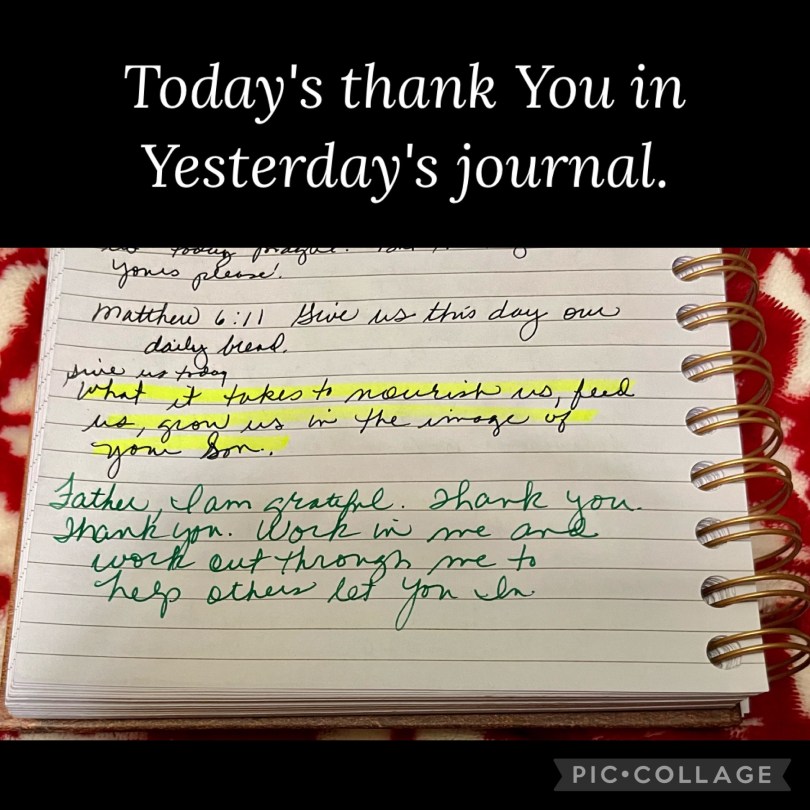 Today's thank You in
Yesterday's journal.
today
Yours please!
Matthew 6:11 Give us this day our
daily bread.
Give us today
What it takes to nourish us, feed
us, grow us in the image of
your Son.
Father, I am grateful. Thank you.
Thank you. Work in me and
work out through me to
help others let You In
PIC•COLLAGE